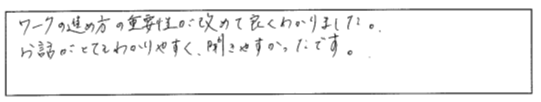 ワークの進め方の重要性が改めて良くわかりました。
お話がとてもわかりやすく、聞きやすかったです。